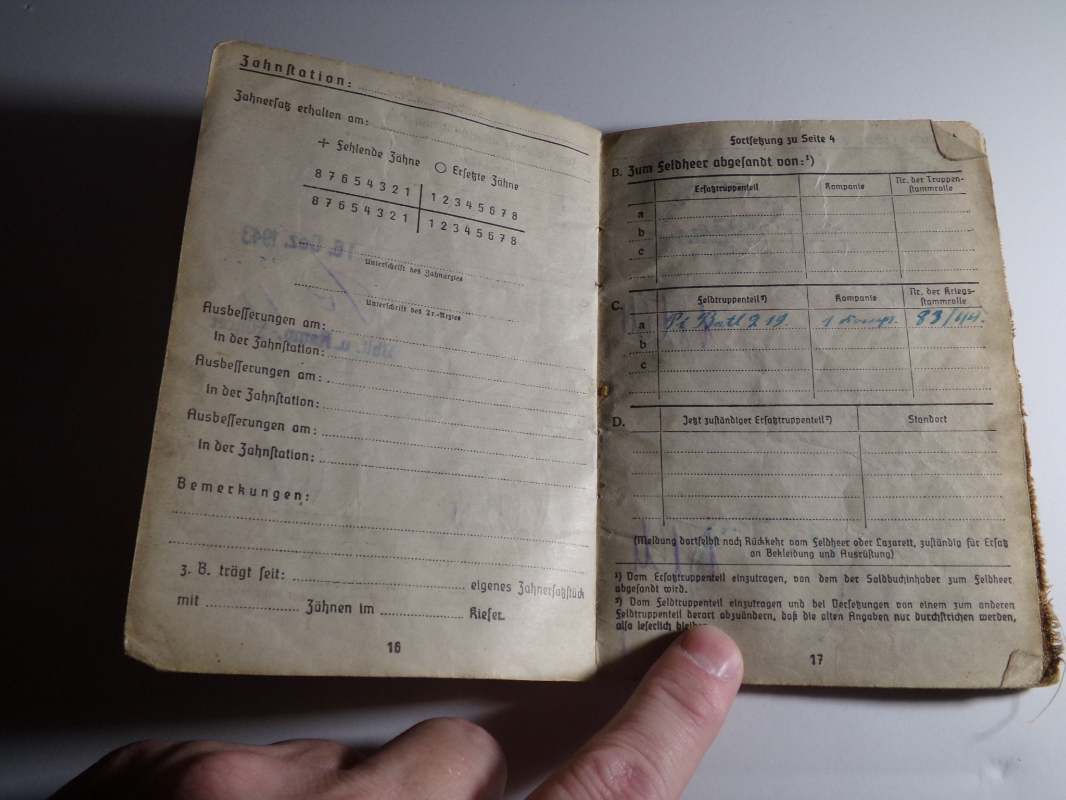 Zahnstation:
Zahnersatz erhalten am:
+ Fehlende Zähne ○ Ersetzte Zähne
8 7 6 5 4 3 2 1 | 1 2 3 4 5 6 7 8
8 7 6 5 4 3 2 1 | 1 2 3 4 5 6 7 8
16. Dez. 1943
Unterschrift des Zahnarztes
Unterschrift des Tr.-Arztes
Ausbesserungen am:
In der Zahnstation:
Ausbesserungen am:
In der Zahnstation:
Ausbesserungen am:
In der Zahnstation:
Bemerkungen:
z. B. trägt seit: eigenes Zahnersatzstück
mit Zähnen im Kiefer.
16
Fortsetzung zu Seite 4
B. Zum Feldheer abgesandt von:¹)
Ersatztruppenteil Kompanie Nr. der Truppen-
stammrolle
a
b
c
C. Feldtruppenteil²) Kompanie Nr. der Kriegs-
stammrolle
a Pi Batl 219. 1 Komp. 83/44.
b
c
D. Jetzt zuständiger Ersatztruppenteil²) Standort
(Meldung dortselbst nach Rückkehr vom Feldheer oder Lazarett, zuständig für Ersatz
an Bekleidung und Ausrüstung)
¹) Vom Ersatztruppenteil einzutragen, von dem der Soldbuchinhaber zum Feldheer
abgesandt wird.
²) Vom Feldtruppenteil einzutragen und bei Versetzungen von einem zum anderen
Feldtruppenteil derart abzuändern, daß die alten Angaben nur durchstrichen werden,
also leserlich bleiben.
17